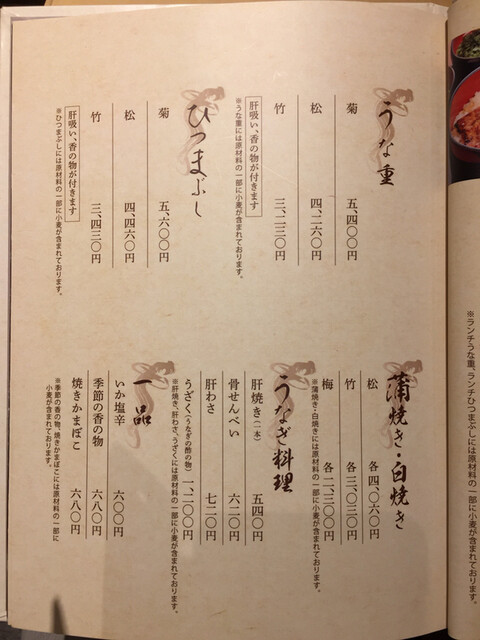 うな重
菊 五、四〇〇円
松 四、二六〇円
竹 三、二三〇円
肝吸い、香の物が付きます
※うな重には原材料の一部に小麦が含まれております。
ひつまぶし
菊 五、六〇〇円
松 四、四六〇円
竹 三、四三〇円
肝吸い、香の物が付きます
※ひつまぶしには原材料の一部に小麦が含まれております。
蒲焼き・白焼き
松 各四、〇六〇円
竹 各三、〇三〇円
梅 各二、三〇〇円
※蒲焼き・白焼きには原材料の一部に小麦が含まれております。
うなぎ料理
肝焼き(一本) 五四〇円
骨せんべい 六二〇円
肝わさ 七二〇円
うざく(うなぎの酢の物) 一、二〇〇円
※肝焼き、肝わさ、うざくには原材料の一部に小麦が含まれております。
一品
いか塩辛 六〇〇円
季節の香の物 六八〇円
焼きかまぼこ 六八〇円
※季節の香の物、焼きかまぼこには原材料の一部に
小麦が含まれております。
※ランチうな重、ランチひつまぶしには原材料の一部に小麦が含まれております。